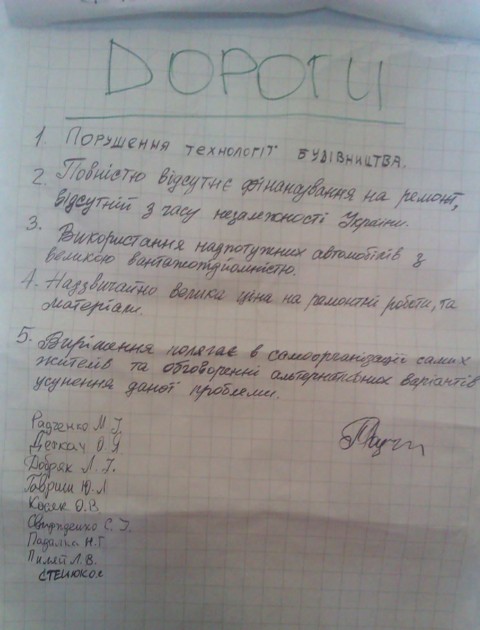 ДОРОГИ
1. ПОРУШЕННЯ ТЕХНОЛОГІЇ БУДІВНИЦТВА.
2. Повністю відсутнє фінансування на ремонт,
відсутній з часу незалежності України.
3. Використання надпотужних автомобілів з
великою вантажопідйомністю.
4. Надзвичайно велика ціна на ремонтні роботи, та
матеріали.
5. Вирішення полягає в самоорганізації самих
жителів та обговоренні альтернативних варіантів
усунення даної проблеми.
Радченко М І.
О Я
Добряк Л. І.
Гавриш Ю. Л
Косяк О. В.
С. І.
Падалка Н. Г.
Пиляй Л. В.